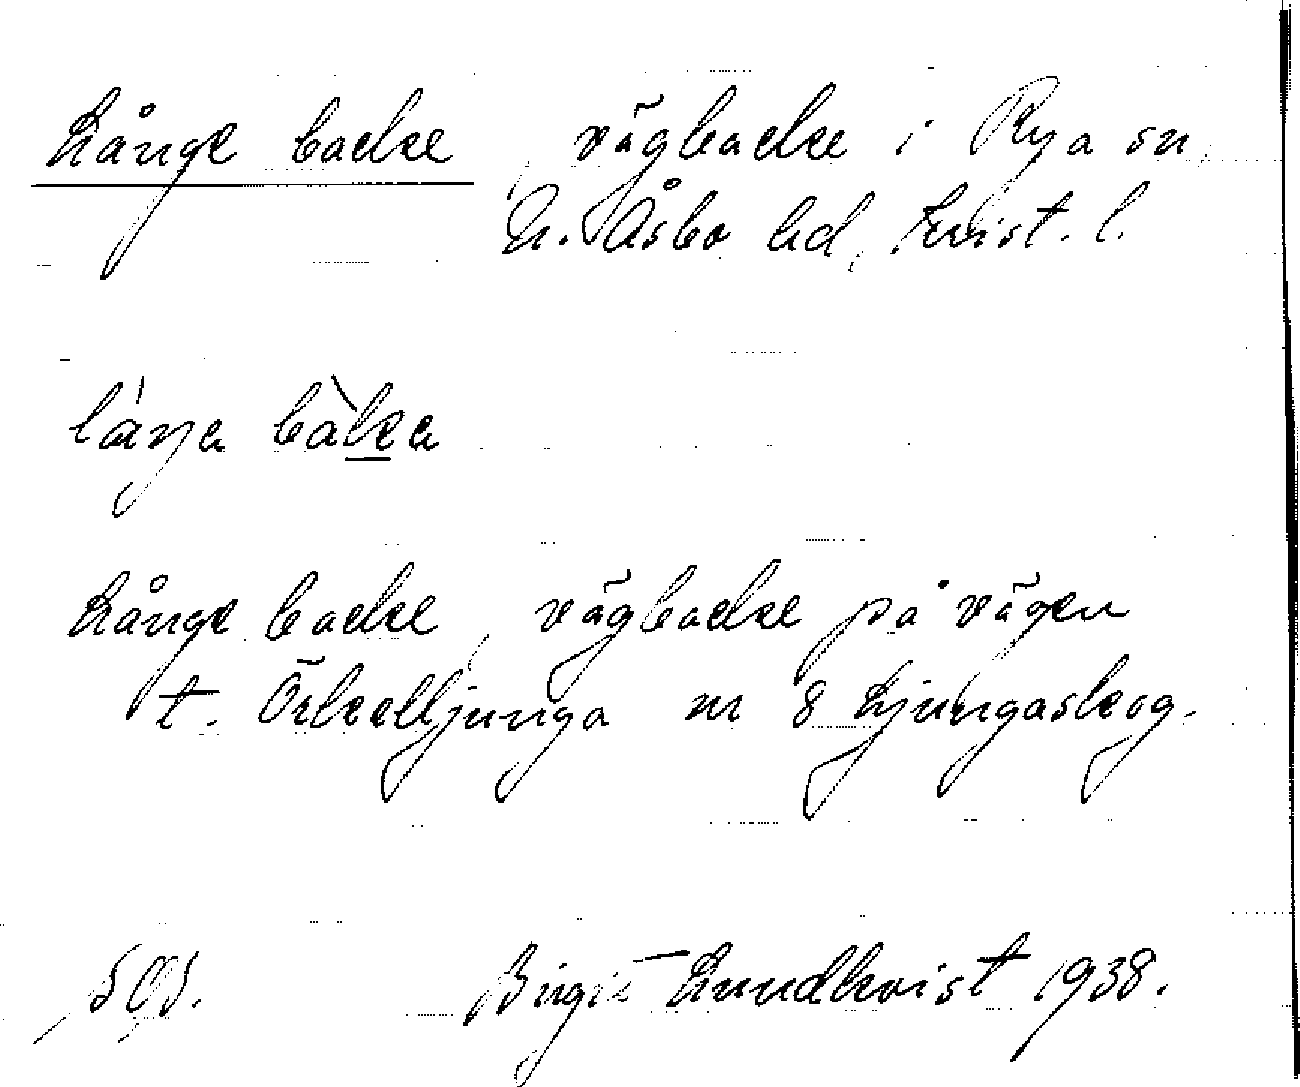 Långe backe, vägbacke i Rya sn,
N. Åsbo hd, Krist. l.
láŋa bàka
Långe backe, vägbacke på vägen
t. Örkelljunga nr 8 Ljungaskog.
Birgit Lundkvist 1938.